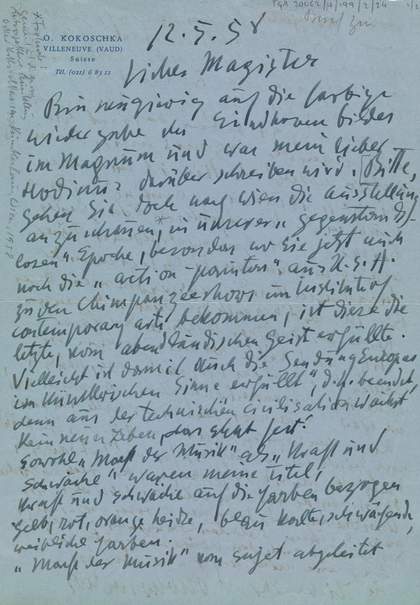 TGA 20062/4/199/2/24
O. KOKOSCHKA
VILLENEUVE (VAUD)
Suisse
Tél. (021) 6 85 12
12. 5. 58
Lieber Magister
Bin neugierig auf die farbige
wiedergabe des Eindhoven bildes
im Magnum und was mein lieber
Hodin darüber schreiben wird. Bitte,
gehen Sie doch nach wien die ausstellung
anzuschauen, in unserer „gegenstands-
losen" Epoche, besonders wo Sie jetzt auch
noch die „action-painters" aus U.S.A.
zu den Chimpanzeeshows im Institut of
contemporary arts bekommen, ist diese die
letzte, vom abendländischen geist erfüllte.
Vielleicht ist damit auch die Sendung Europas
im künstlerischen Sinne erfüllt, d.h. beendet,
denn aus der technischen civilisation wächst
kein neues Leben, das steht fest!
Sowohl „Macht der Musik" als „Kraft und
Schwäche" waren meine titel,
Kraft und schwäche auf die farben bezogen
gelb, rot, orange heiße, blau kalte, schwächende,
weibliche farben.
„Macht der Musik" vom sujet abgeleitet